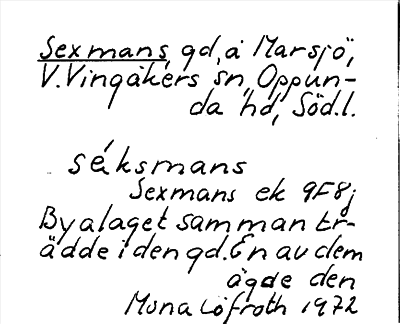 Sexmans, gd, å Marsjö,
V. Vingåkers sn, Oppun-
da hd, Söd.l.
séksmans
Sexmans ek 9F8j
Byalaget samman tr-
ädde i den gd. En av dem
ägde den
Mona Löfroth 1972